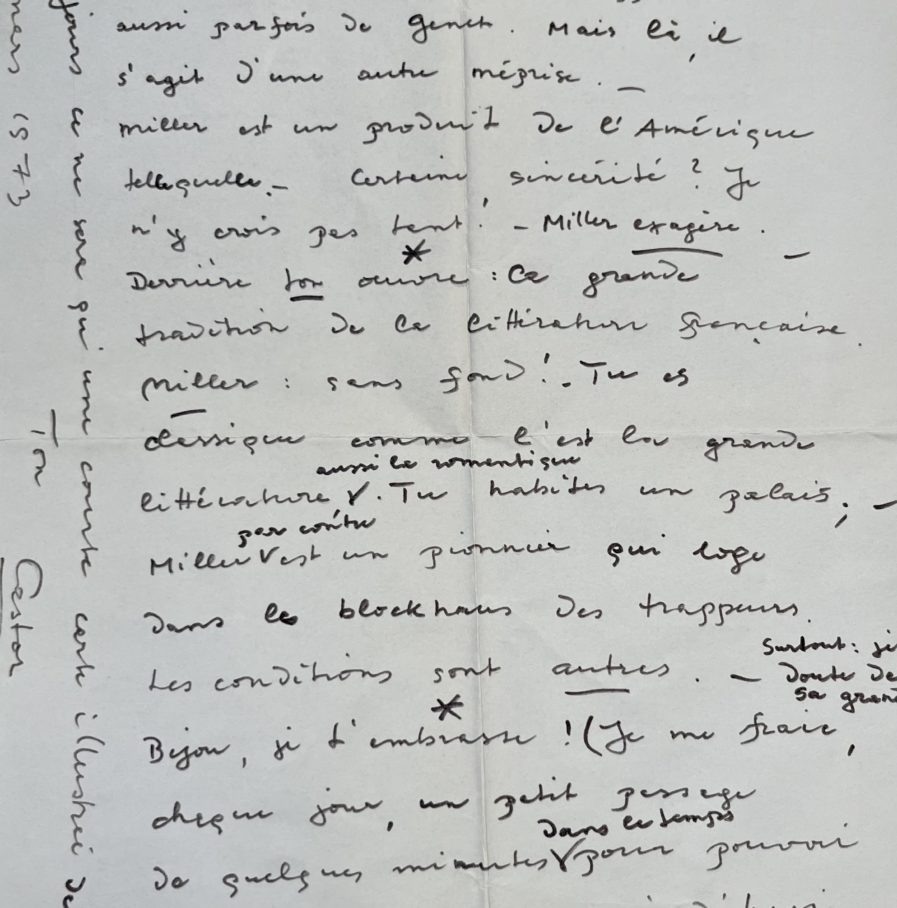 aussi parfois de Genet. Mais là, il
s'agit d'une autre méprise. —
Miller est un produit de l'Amérique
tellequelle. — Certaine sincérité? Je
n'y crois pas tant! — Miller exagère. —
Derrière ton œuvre : la grande
tradition de la littérature française.
Miller : sans fond! . Tu es
classique comme l'est la grande
aussi la romantique
littérature V. Tu habites un palais; —
par contre
Miller V est un pionnier qui loge
dans le blockhaus des trappeurs.
Les conditions sont autres. —
Surtout: je
doute de
sa grand
*
*
Bijou, je t'embrasse! (Je me fraie,
chaque jour, un petit passage
dans le temps
de quelques minutes V pour pouvoir
jours ce ne sera qu'une courte carte illustrée de
1973
Ton
Castor